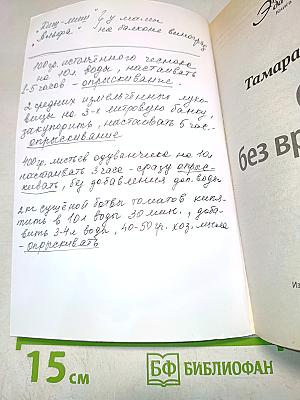 "Дит-лит" ? у мами
"Альфа" на балконе виноград
100гр. истолчённого чеснока
на 10л воды, настаивать
1-5 часов - опрыскивание.
2 средних измельчённых луко-
вицы на 3-х литровую банку,
закупорить, настаивать 5 час.
- опрыскивание
400гр. листьев одуванчика на 10л
настаивать 3 часа - сразу опрыс-
кивать, без добавления доп. воды
2 кг сушёной ботвы томатов кипя-
тить в 10л воды 30 мин., доба-
вить 3-4л воды, 40-50гр. хоз. мыла
- опрыскивать
Эк
книга
Тамара
без вр
Из
15 см
БФ БИБЛИОФАН